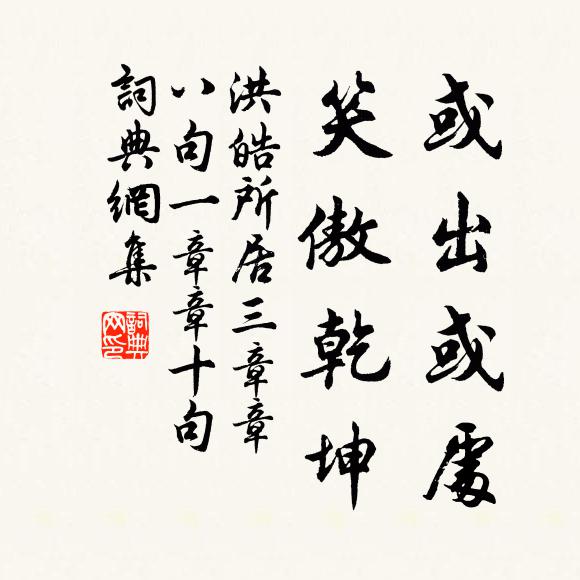 或出或處
笑傲乾坤
洪皓所居三章章
八句一章章十句
詞典網集
詞典網印